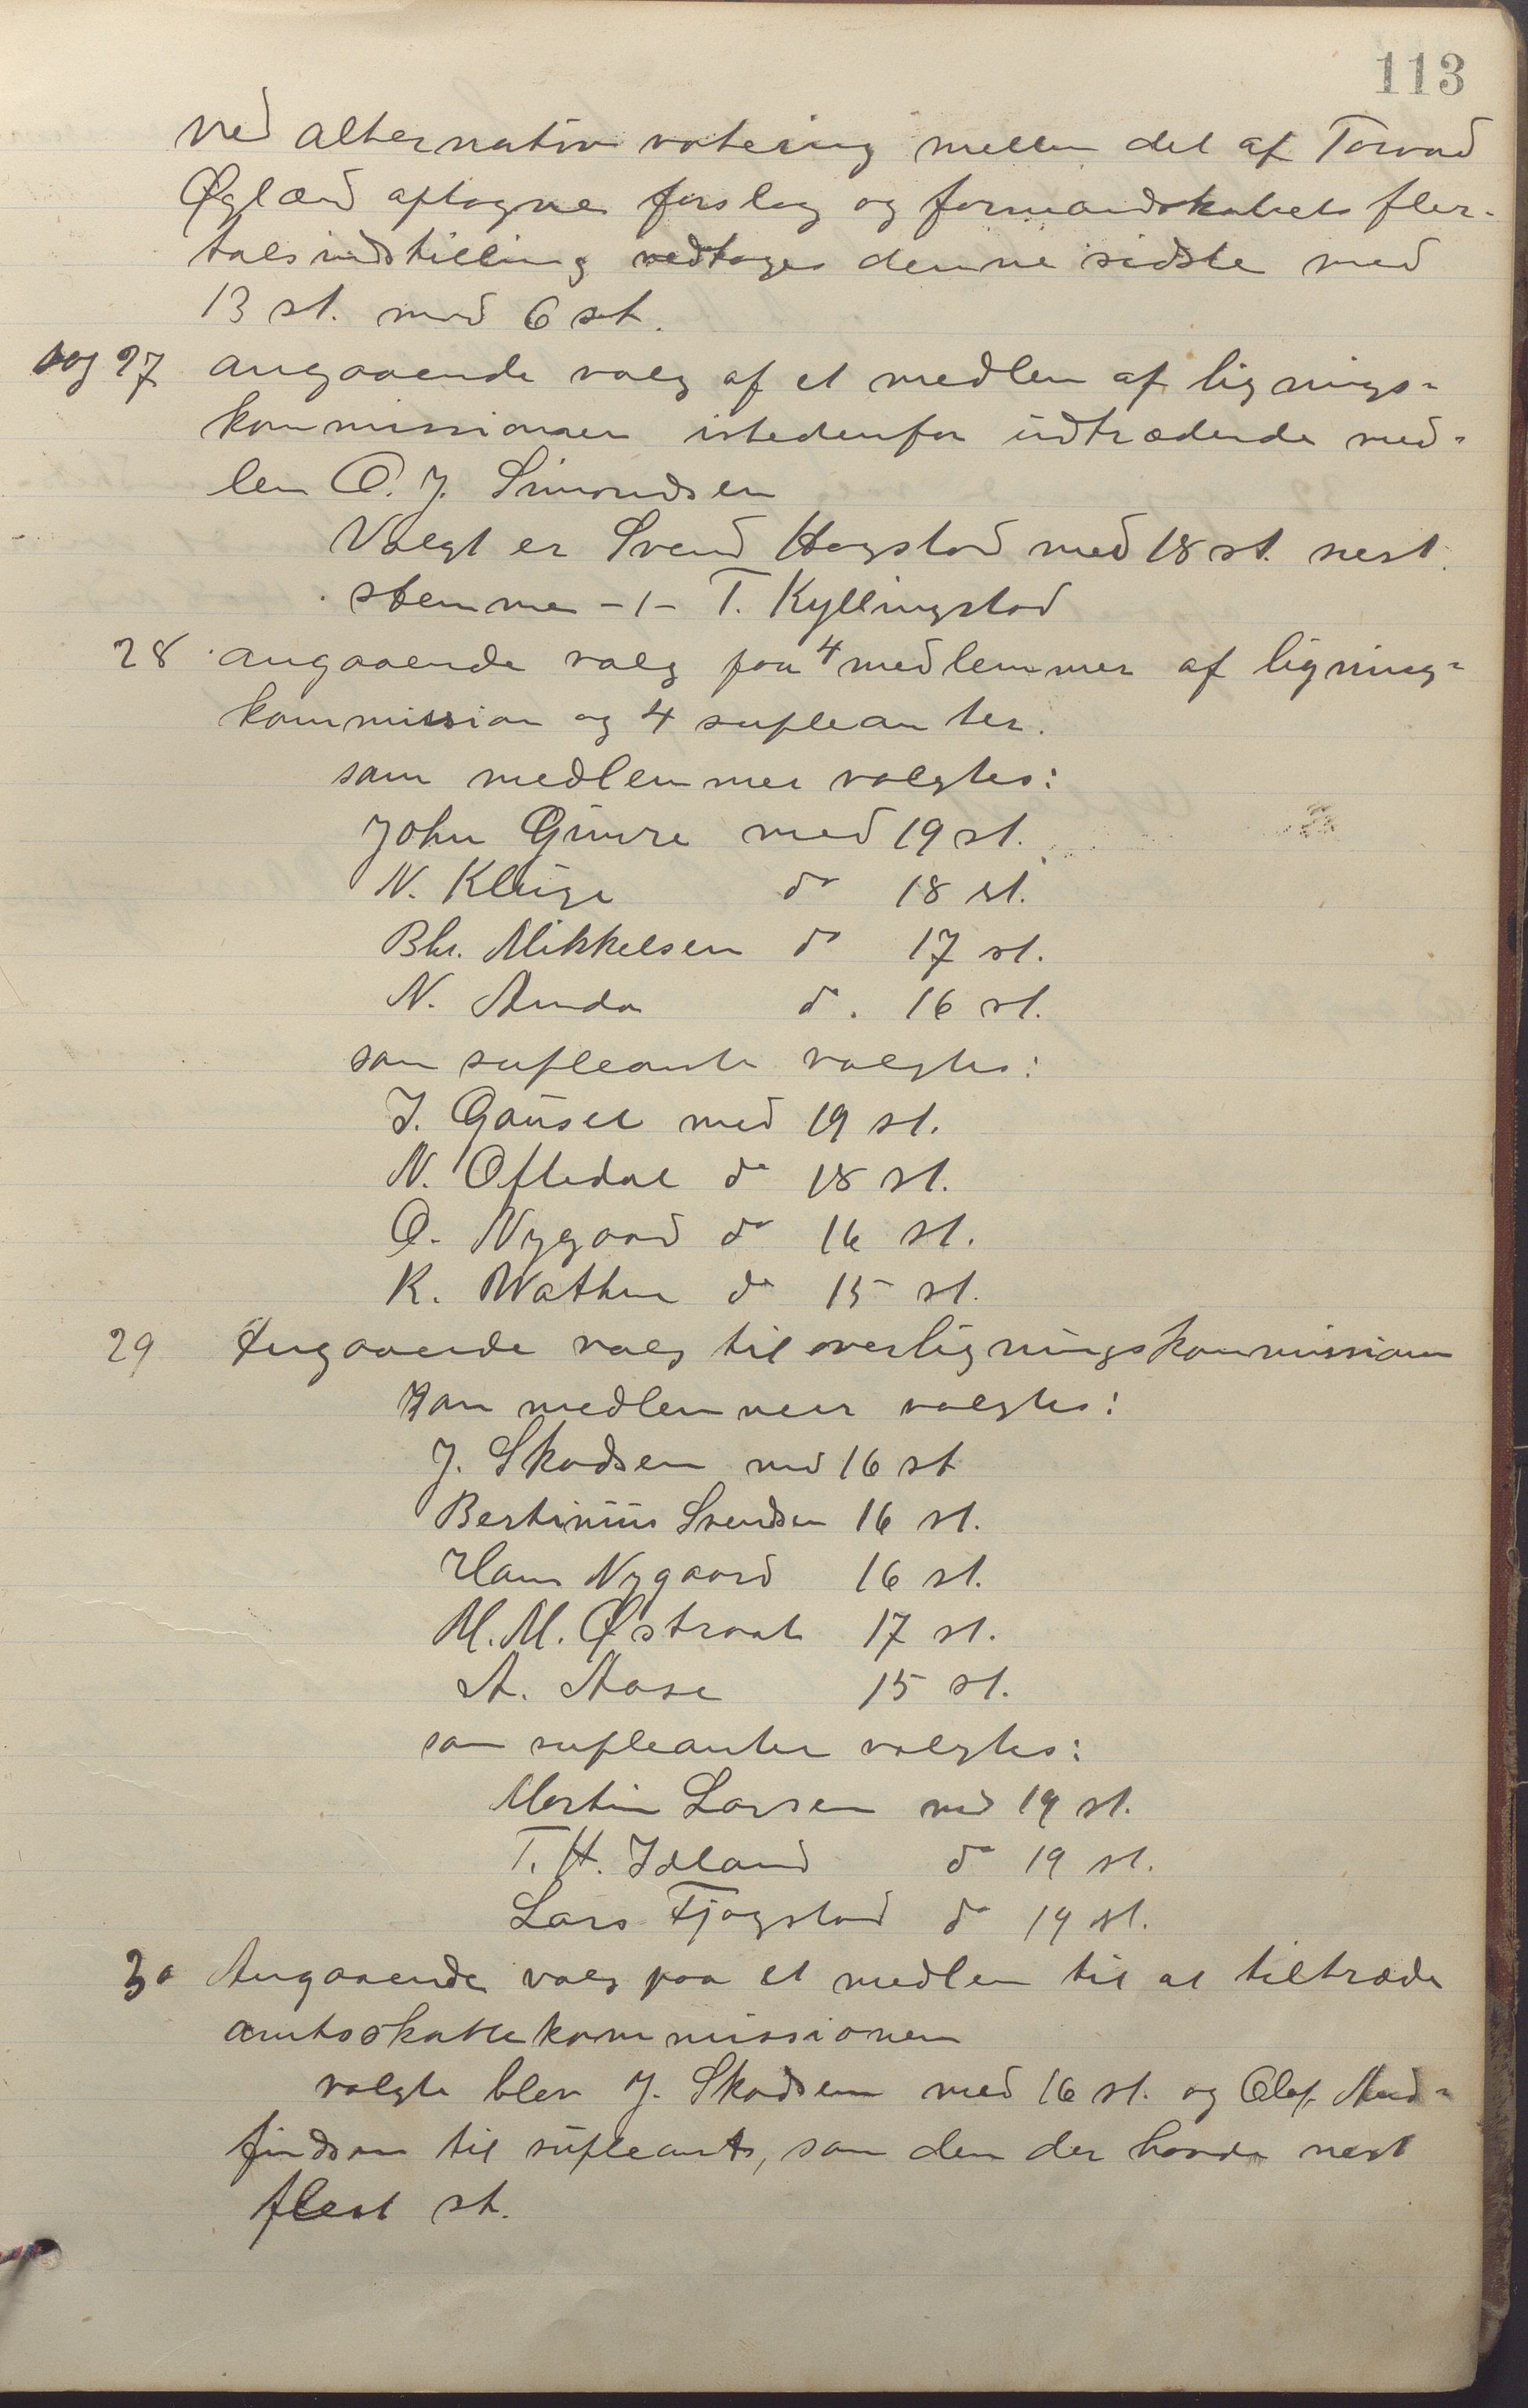 113
ved alternativ votering mellem det af Torvad
Øglænd aptogne forslag og formandskabets fler-
talsindstilling vedtoges denne sidste med
13 st. mod 6 st.
sag 27 angaaende valg af et medlem af lignings-
kommissionen istedenfor udtrædende med-
lem O. J. Simondsen
Valgt er Svend Hogstad med 18 st. nest
stemme -1- T. Kyllingstad
28 angaaende valg paa 4 medlemmer af ligning-
kommission og 4 supleanter.
som medlemmer valgtes:
John Gimre med 19 st.
N. Kluge do 18 st.
Bhr. Mikkelsen do 17 st.
N. Anda do. 16 st.
som supleante valgtes:
J. Gausel med 19 st.
N. Oftedal do 18 st.
O. Nygaard do 16 st.
K. Wathne do 15 st.
29 Angaaende valg til overligningskommissionen
som medlemmer valgtes:
J. Skadsem med 16 st
Bertinius Svendsen 16 st.
Hans Nygaard 16 st.
M. M. Østraat 17 st.
A. Aase 15 st.
som supleanter valgtes:
Martin Larsen med 19 st.
T. H. Idland do 19 st.
Lars Fjogstad do 19 st.
30 Angaaende valg paa et medlem til at tiltræde
amtsskattekommissionen
valgte blev J. Skadsem med 16 st. og Olaf Aud-
findsen til supleant, som den der havde nest
flest st.